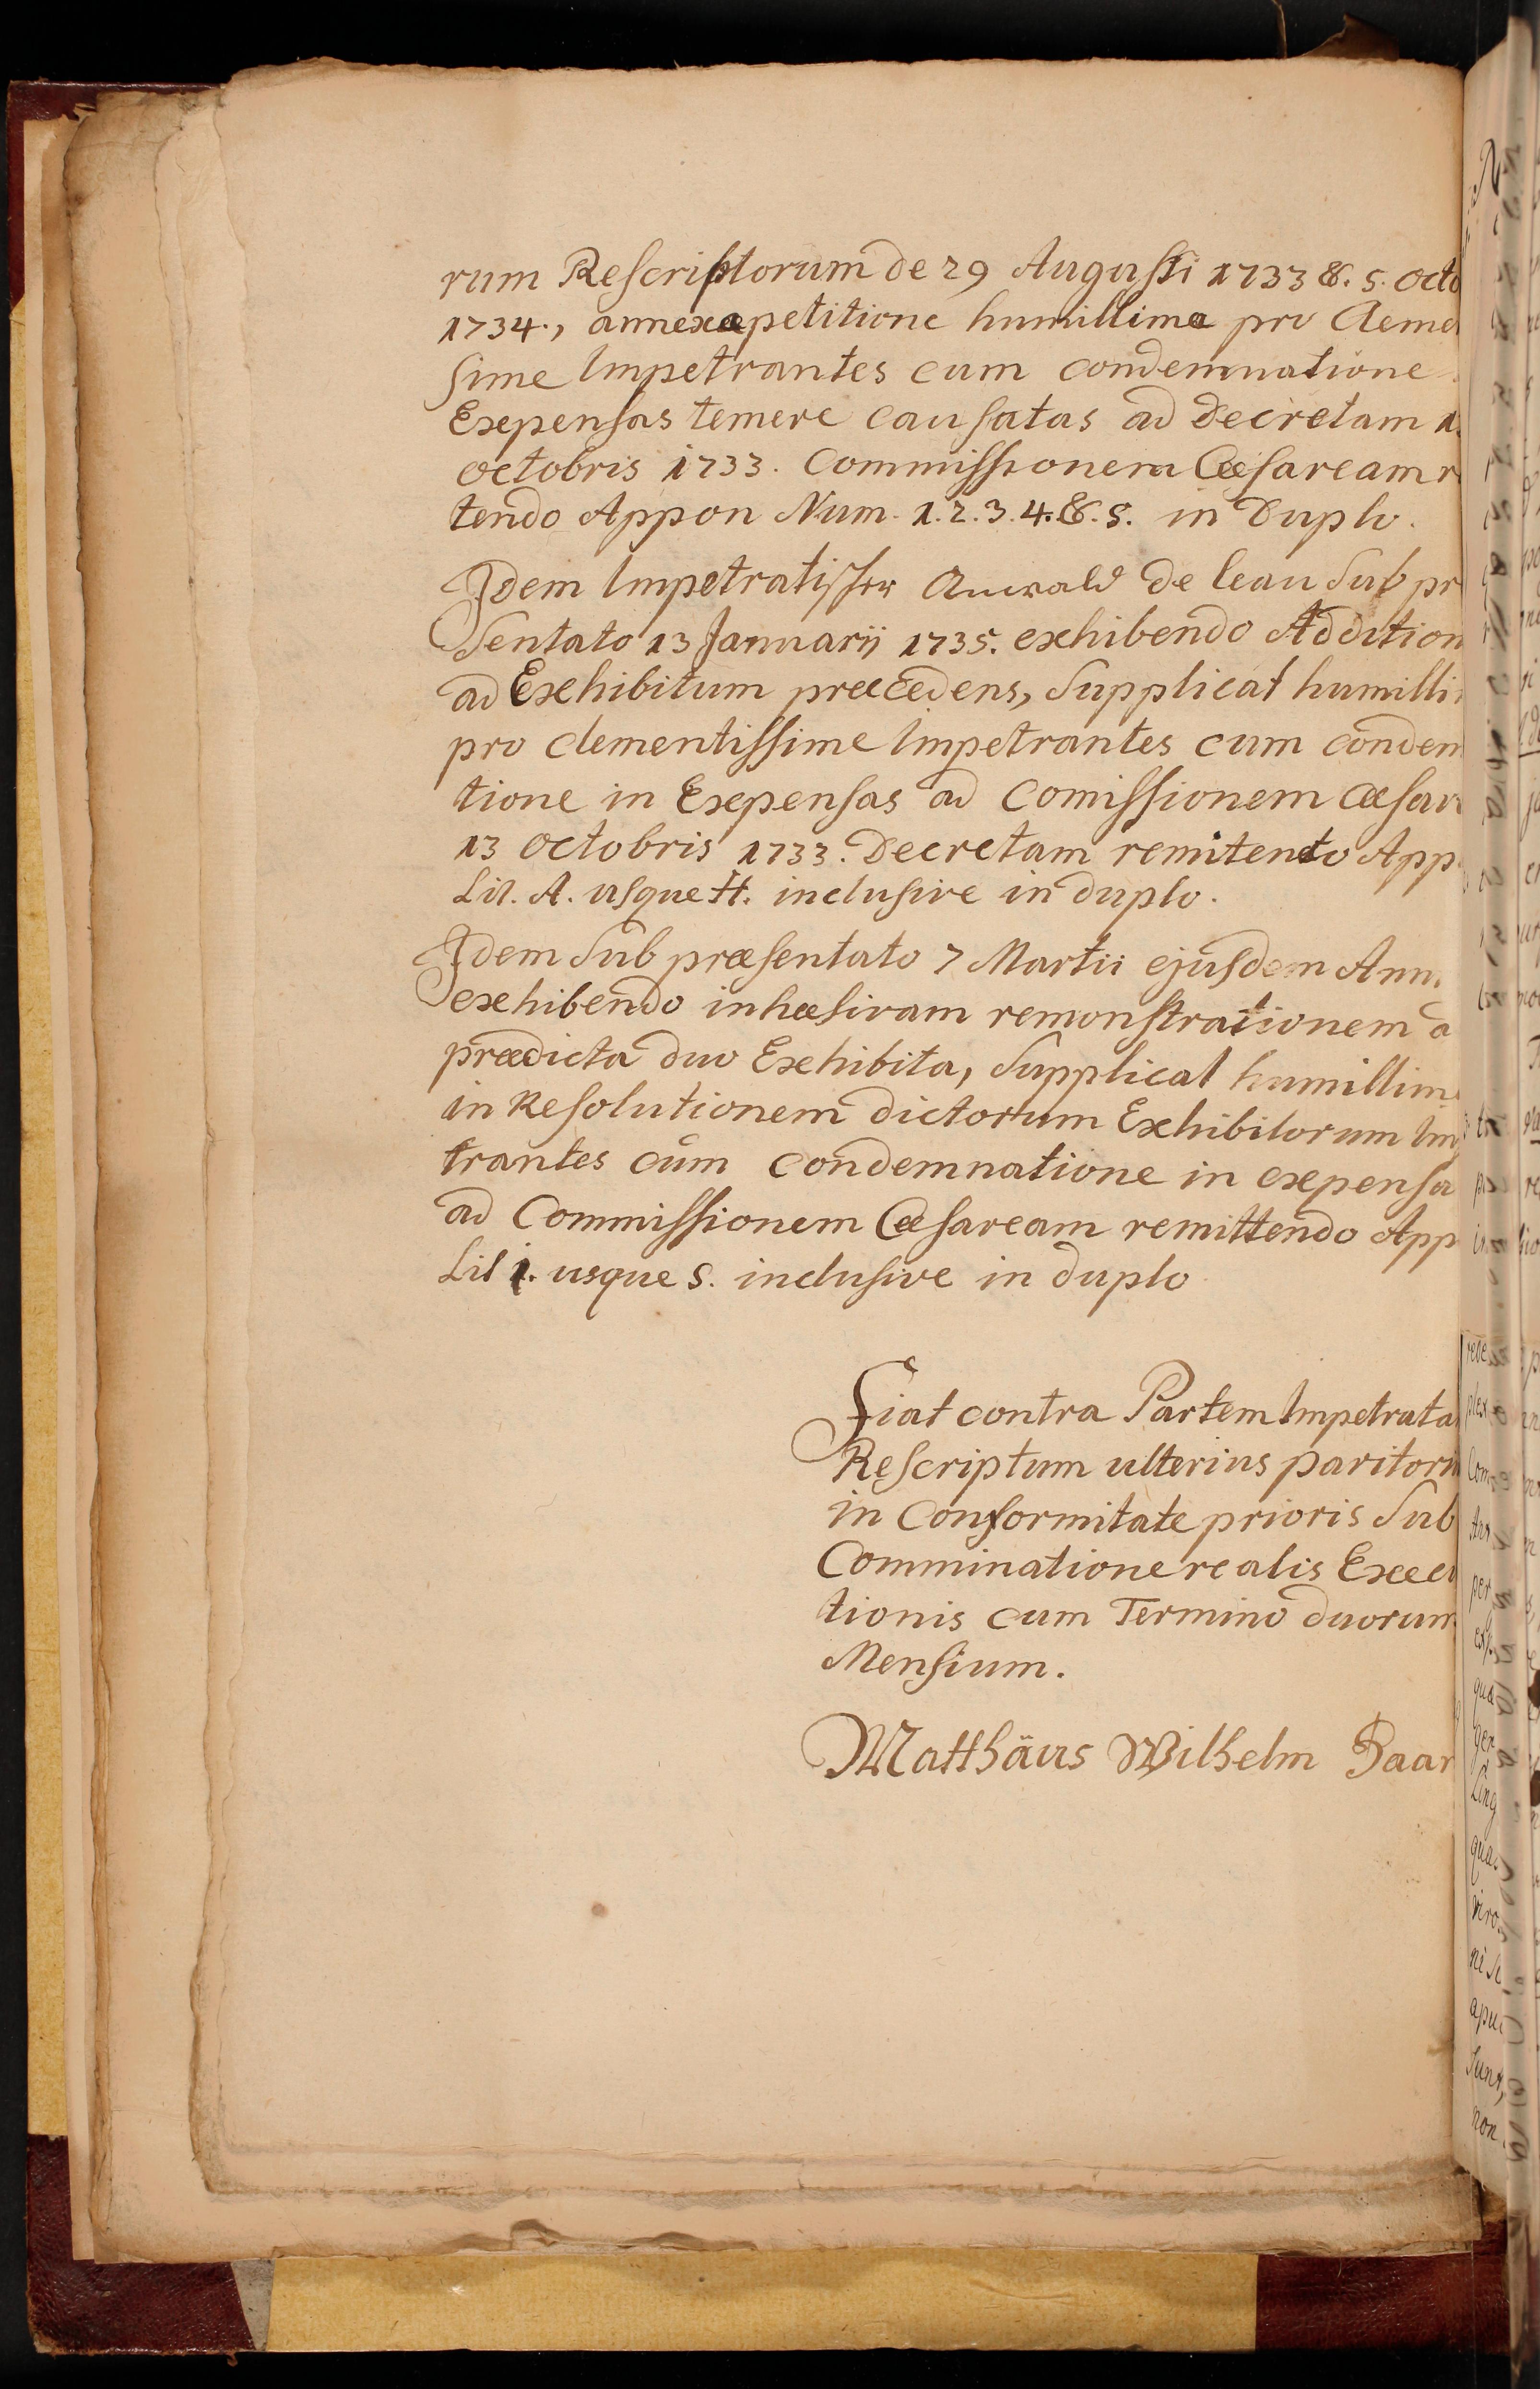 rum Rescriptorum de 29 Augusti 1733 &. 5. Octo
1734., annexa petitione humillima pro Cleme
sime Impetrantes cum condemnatione
Expensas temere causatas ad Decretam 1
Octobris 1733. Commissionem Cæsaream r
tendo Appon Num. 1. 2. 3. 4. &. 5. in Duplo.
Idem Impetratischer Anwald de leau Sub pr
Sentato 13 Januarii 1735. exhibendo Addition
ad Exhibitum præcedens, Supplicat humilli
pro clementissime Impetrantes cum condem
tione in Expensas ad Comissionem Cæsar
13 Octobris 1733. Decretam remitendo App
Lit. A. usque H. inclusive in duplo.
Idem Sub præsentato 7 Martii ejusdem Ann
exhibendo inhæsivam remonstrationem a
prædicta duo Exhibita, Supplicat humillim
in Resolutionem dictorum Exhibitorum Im
trantes cum condemnatione in expensa
ad Commissionem Cæsaream remittendo App
Lit i. usque S. inclusive in duplo
Fiat contra Partem Impetrata
Rescriptum ulterius paritori
in Conformitate prioris Sub
Comminatione realis Execu
tionis cum Termino duorum
Mensium.
Matthäus Wilhelm Baar